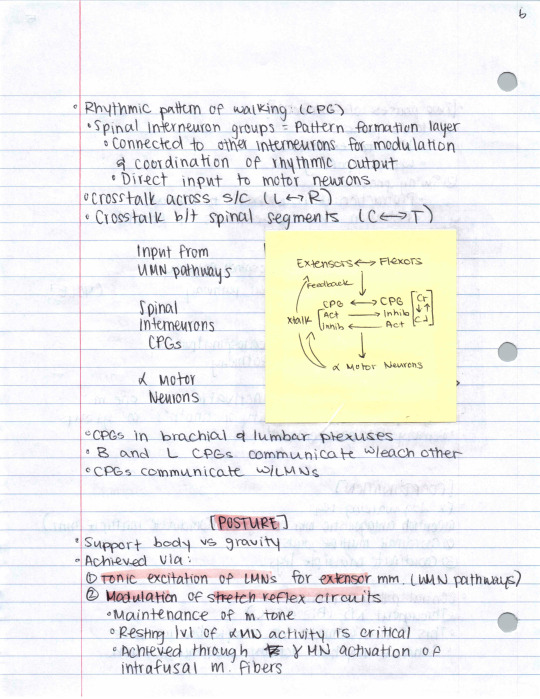 6
• Rhythmic pattern of walking (CPG)
• Spinal Interneuron groups = Pattern formation layer
• Connected to other interneurons for modulation
& coordination of rhythmic output
• Direct input to motor neurons
• Crosstalk across s/c (L↔R)
• Crosstalk b/t spinal segments (C↔T)
Input from
UMN pathways
Spinal
Interneurons
CPGs
α Motor
Neurons
Extensors ↔ Flexors
Feedback
CPG ↔ CPG
xtalk [Act → Inhib
Inhib ← Act
Cr
α Motor Neurons
• CPGs in brachial & lumbar plexuses
• B and L CPGs communicate w/each other
• CPGs communicate w/LMNs
[POSTURE]
• Support body vs gravity
• Achieved via:
① Tonic excitation of LMNs for extensor mm. (UMN pathways)
② Modulation of stretch reflex circuits
• Maintenance of m. tone
• Resting lvl of αMN activity is critical
• Achieved through γ MN activation of
intrafusal m. fibers